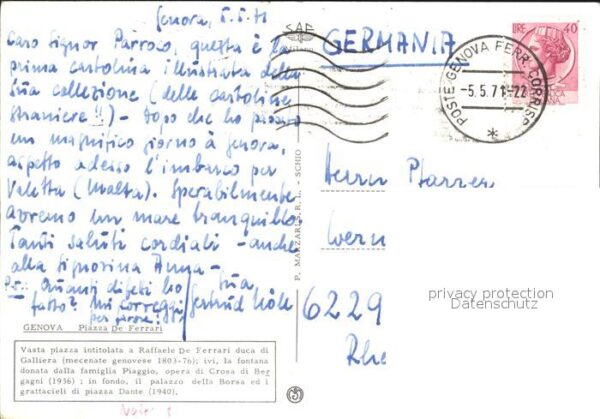 Genova, 5.5.71
Caro Signor Parroco, questa è la
prima cartolina illustrata della
Sua collezione (delle cartoline
straniere!!) - dopo che ho passato
un magnifico giorno à Genova,
aspetto adesso l'imbarco per
Valetta (Malta). Sperabilmente
avremo un mare tranquillo.
Tanti saluti cordiali - anche
alla Signorina Anna -
Sua
P.S.: Quanti difetti ho
fatto? Mi corregga
per favore!
Gertrud
GENOVA Piazza De Ferrari
Vasta piazza intitolata a Raffaele De Ferrari duca di
Galliera (mecenate genovese 1803-76); ivi, la fontana
donata dalla famiglia Piaggio, opera di Crosa di Ber
gagni (1936) ; in fondo, il palazzo della Borsa ed i
grattacieli di piazza Dante (1940).
P. MARZARI S.R.L. - SCHIO
SAF
GERMANIA
POSTE GENOVA FERR. CORRISP.
-5.5.71-22
LIRE 40
Herrn Pfarrer
6229
privacy protection
Datenschutz